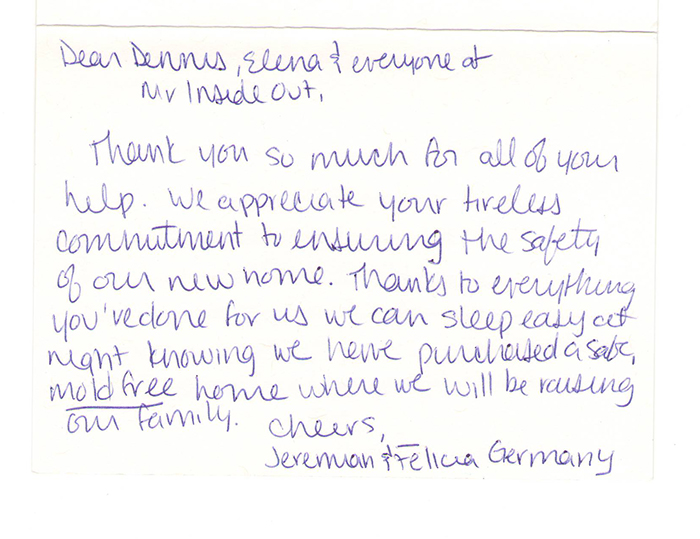 Dear Dennis, Elena & everyone at
Mr Inside Out,
Thank you so much for all of your
help. We appreciate your tireless
commitment to ensuring the safety
of our new home. Thanks to everything
you've done for us we can sleep easy at
night knowing we have purchased a safe,
mold free home where we will be raising
our family.
Cheers,
Jeremiah & Felicia Germany